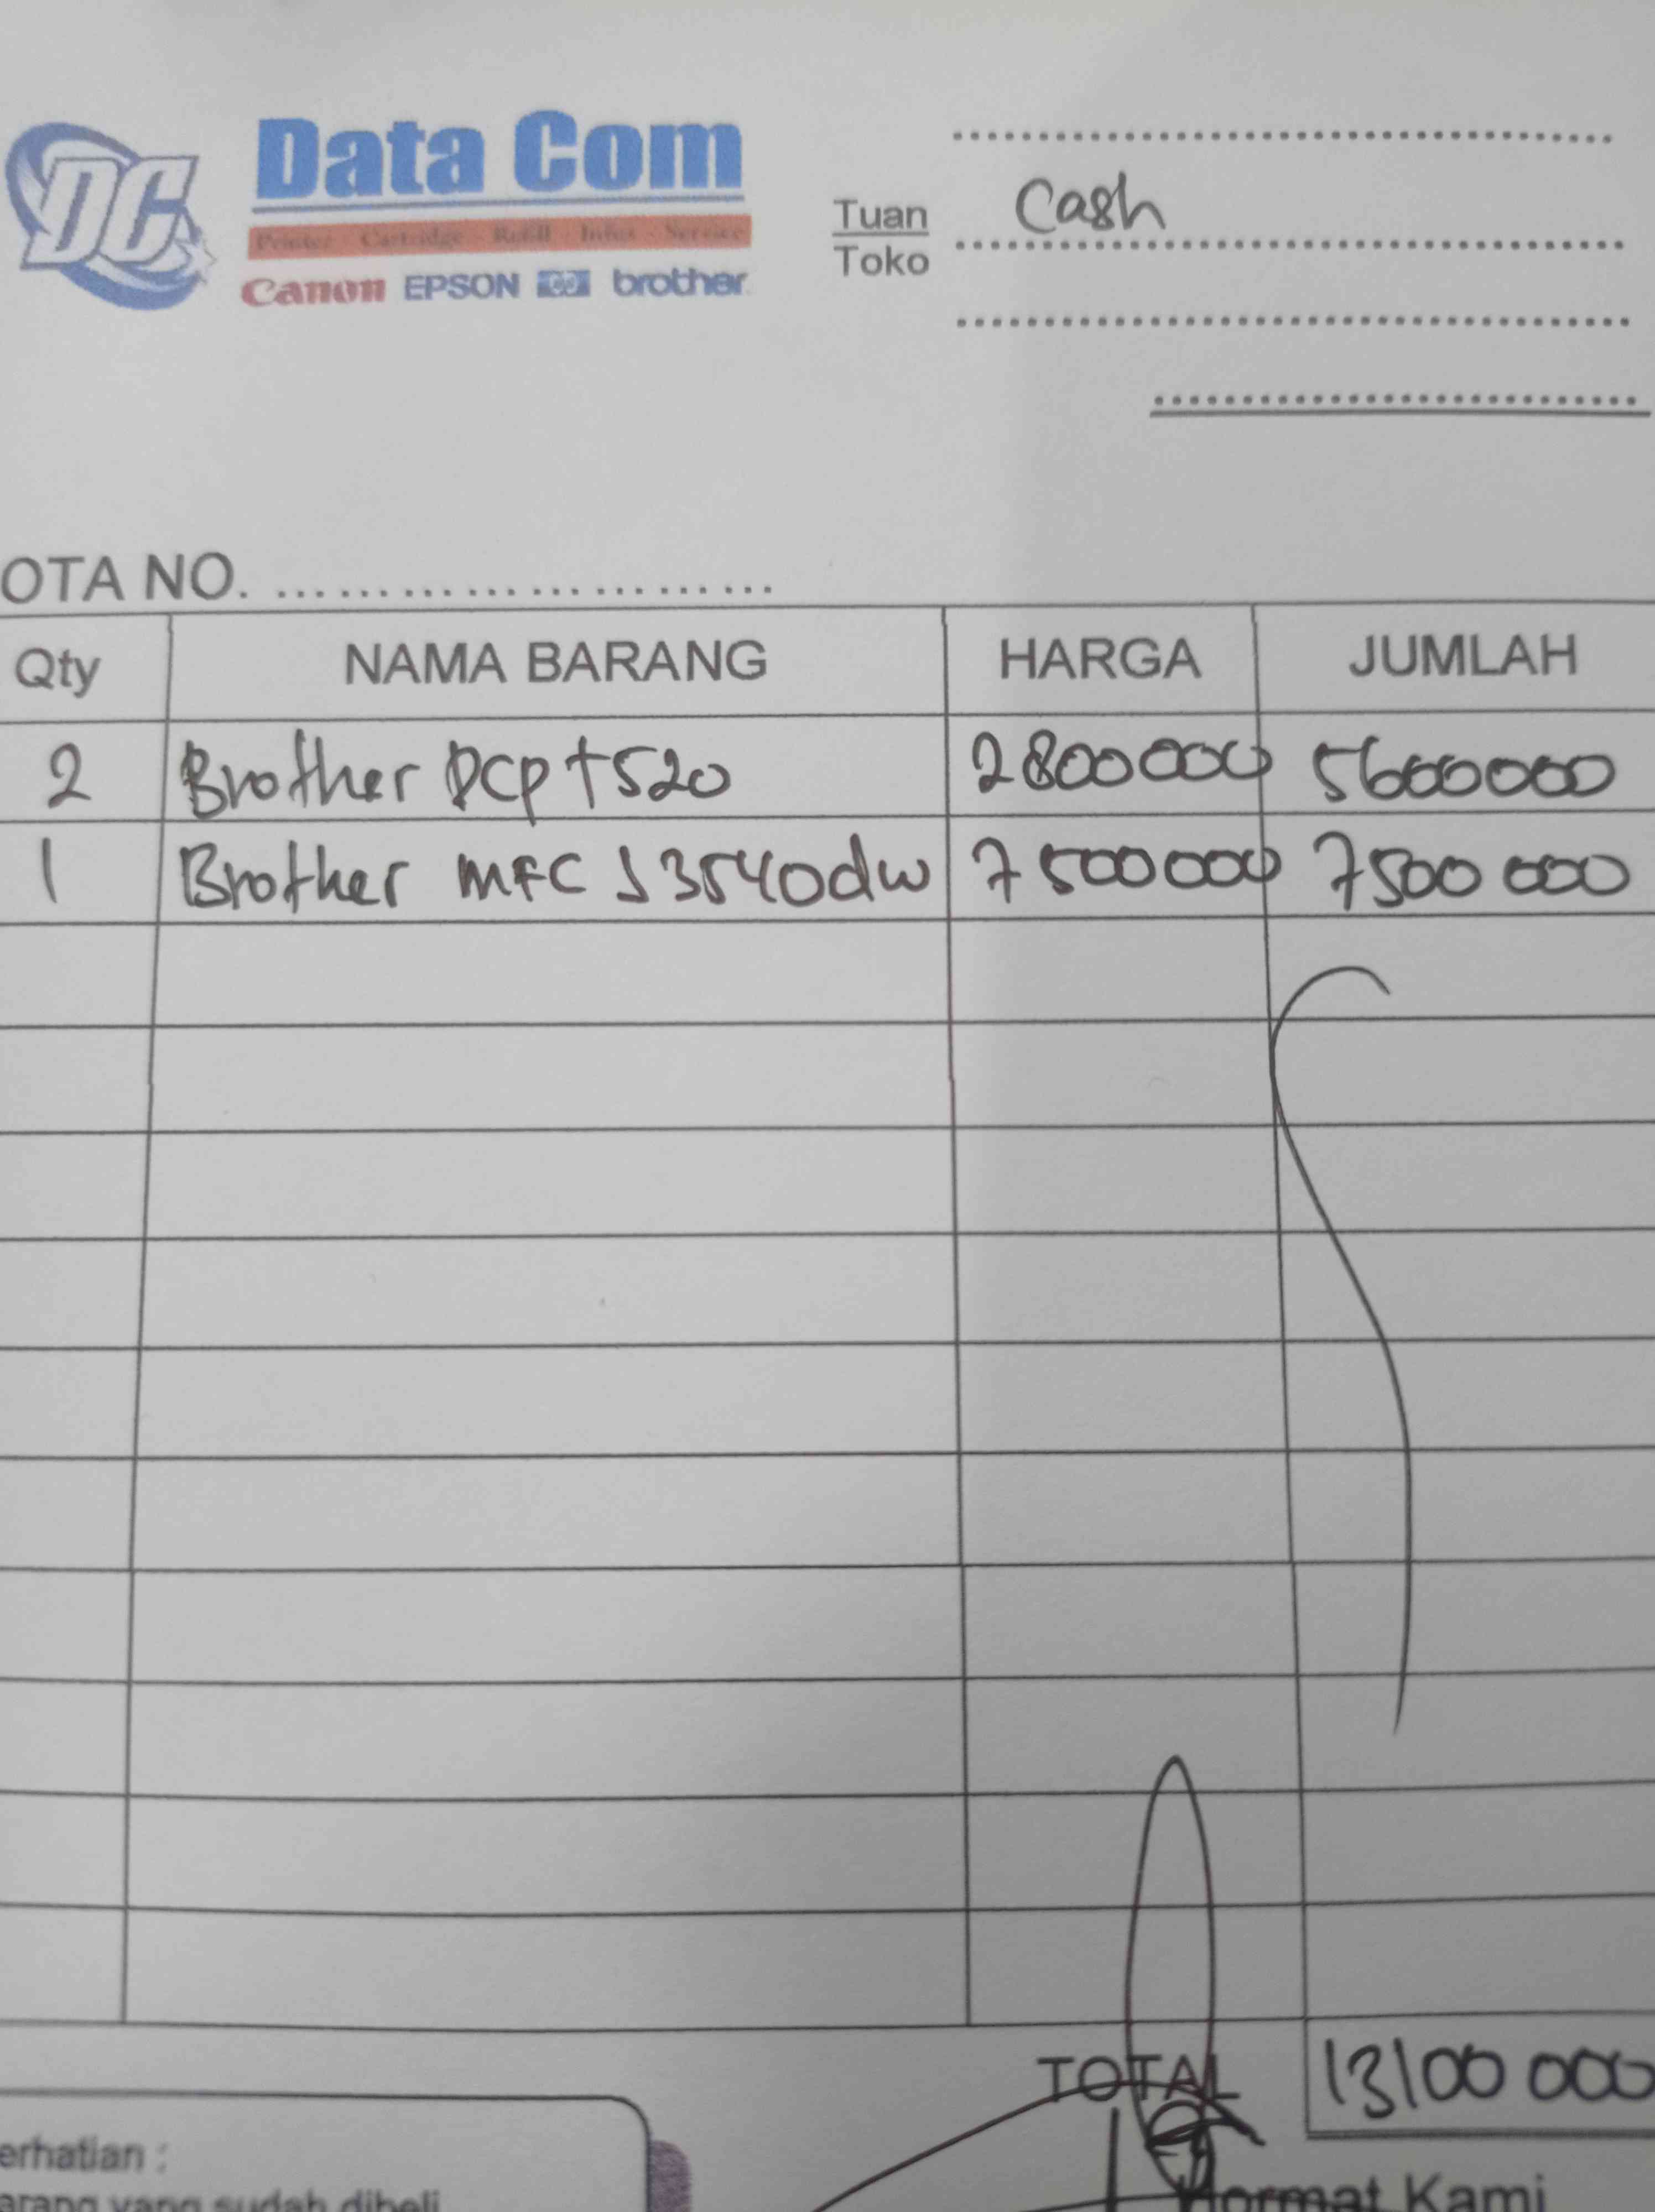 DC
Data Com
Printer - Cartridge - Refill - Infus - Service
Canon EPSON hp brother
Tuan
Toko
Cash
OTA NO.
Qty NAMA BARANG HARGA JUMLAH
2 Brother DCP T520 2800000 5600000
1 Brother MFC J3540dw 7500000 7500 000
TOTAL 13100 000
erhatian :
arang yang sudah dibeli
Hormat Kami